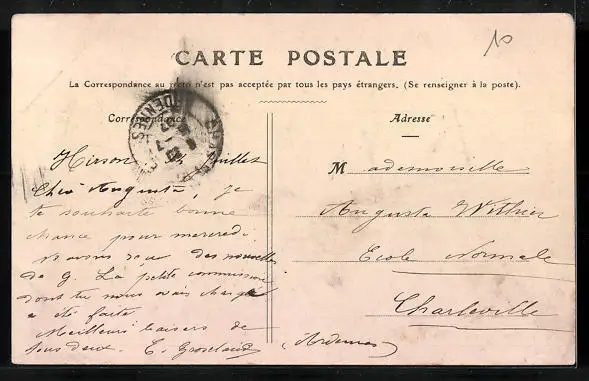 10
CARTE POSTALE
La Correspondance au recto n'est pas acceptée par tous les pays étrangers. (Se renseigner à la poste).
Correspondance
Hirson juillet
Cher Augusta, je
te souhaite bonne
chance pour mercredi.
reçu des nouvelles
de G. La petite commission
dont tu nous avais chargé
a été faite
Meilleurs baisers de
tous deux. E.
Adresse
Mademoiselle
Augusta
Ecole Normale
Charleville
(Ardennes)
ARDENNES